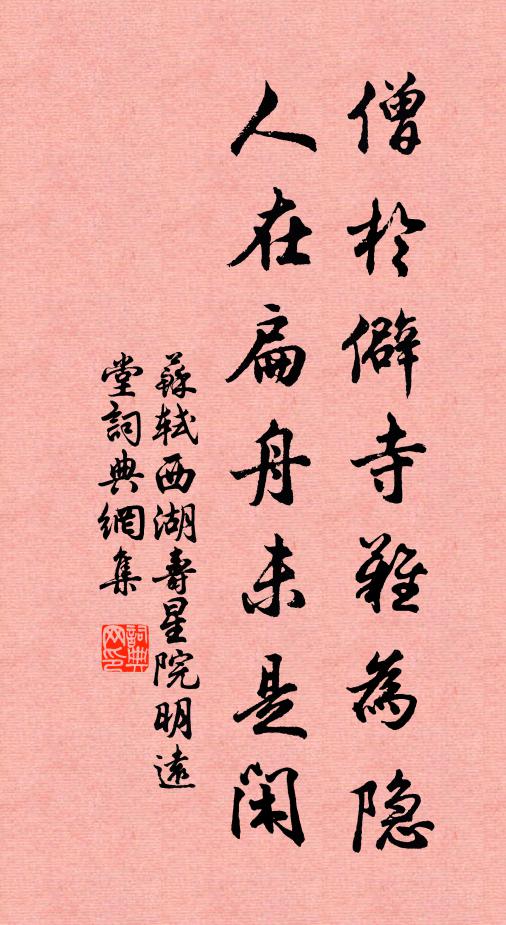 僧於僻寺難為隐
人在扁舟未是閑
蘇轼西湖壽星院明遠
堂詞典網集
詞典网印